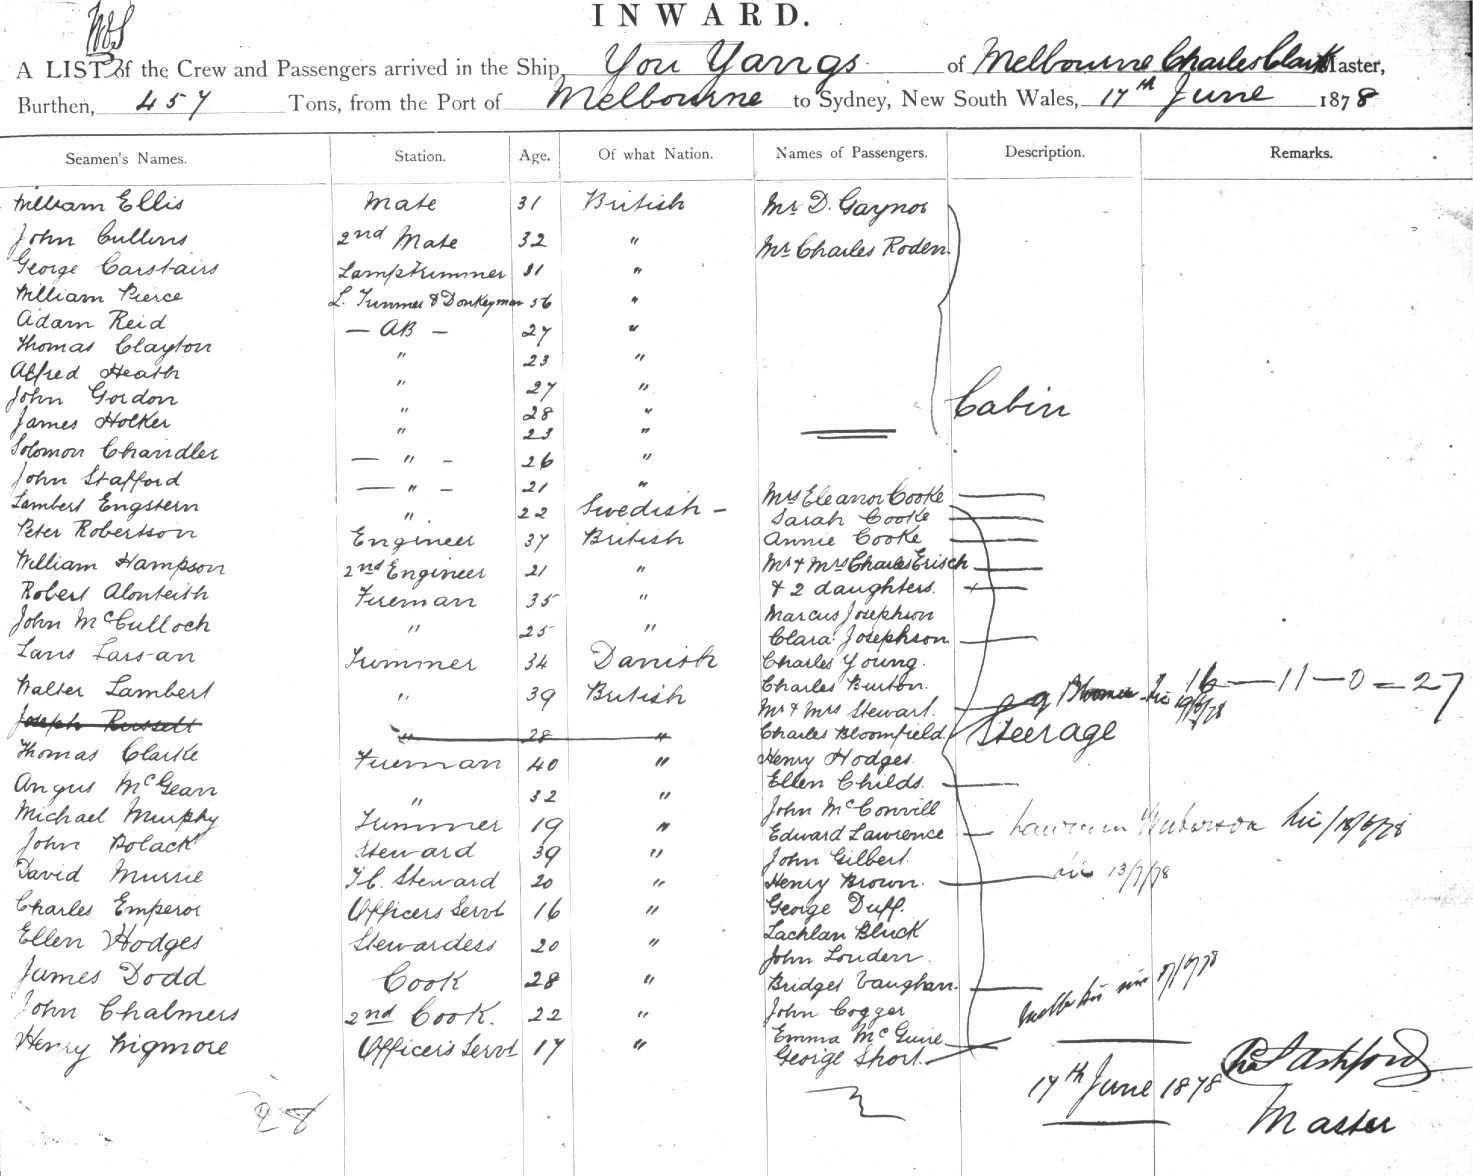 INWARD.
A LIST of the Crew and Passengers arrived in the Ship You Yangs of Melbourne Charles Clark Master,
Burthen, 457 Tons, from the Port of Melbourne to Sydney, New South Wales, 17th June 1878
Seamen's Names. Station. Age. Of what Nation. Names of Passengers. Description. Remarks.
William Ellis Mate 31 British Mr D. Gaynor
John Cullens 2nd Mate 32 " Mr Charles Roden
George Carstairs Lamptrimmer 31 "
William Pierce L. Trimmer & Donkeyman 56 "
Adam Reid — AB — 27 "
Thomas Clayton " 23 "
Alfred Heath " 27 "
John Gordon " 28 "
Cabin
James Holker " 23 "
Solomon Chandler — " - 26 "
John Stafford — " - 21 "
Lambert Engstern " 22 Swedish - Mrs Eleanor Cooke
Sarah Cooke
Peter Robertson Engineer 37 British Annie Cooke
William Hampson 2nd Engineer 21 " Mr & Mrs Charles Erisch
& 2 daughters.
Robert Alonteith Fireman 35 " Marcus Josephson
John McCulloch " 25 " Clara Josephson
Lans Larsan Trimmer 34 Danish Charles Young.
Walter Lambert " 39 British Charles Burton. 16 — 11 — 0 = 27
Mr & Mrs Stewart. 19/6/78
Joseph Russell " 28 " Charles Bloomfield Steerage
Thomas Clarke Fireman 40 " Henry Hodges
Angus McGean " 32 " Ellen Childs
John McConvill
Michael Murphy Trimmer 19 " Edward Lawrence Lawrence 18/6/78
John Polack Steward 39 " John Gilbert
David Murrie F.C. Steward 20 " Henry Brown. 13/7/78
Charles Emperor Officers Servt 16 " George Duff.
Ellen Hodges Stewardess 20 " Lachlan Bluck
John Louden.
James Dodd Cook 28 " Bridget Vaughan.
John Chalmers 2nd Cook. 22 " John Cogger
Emma McGuire
Henry Wigmore Officer's Servt 17 " George Short.
28
17th June 1878
Ashford
Master